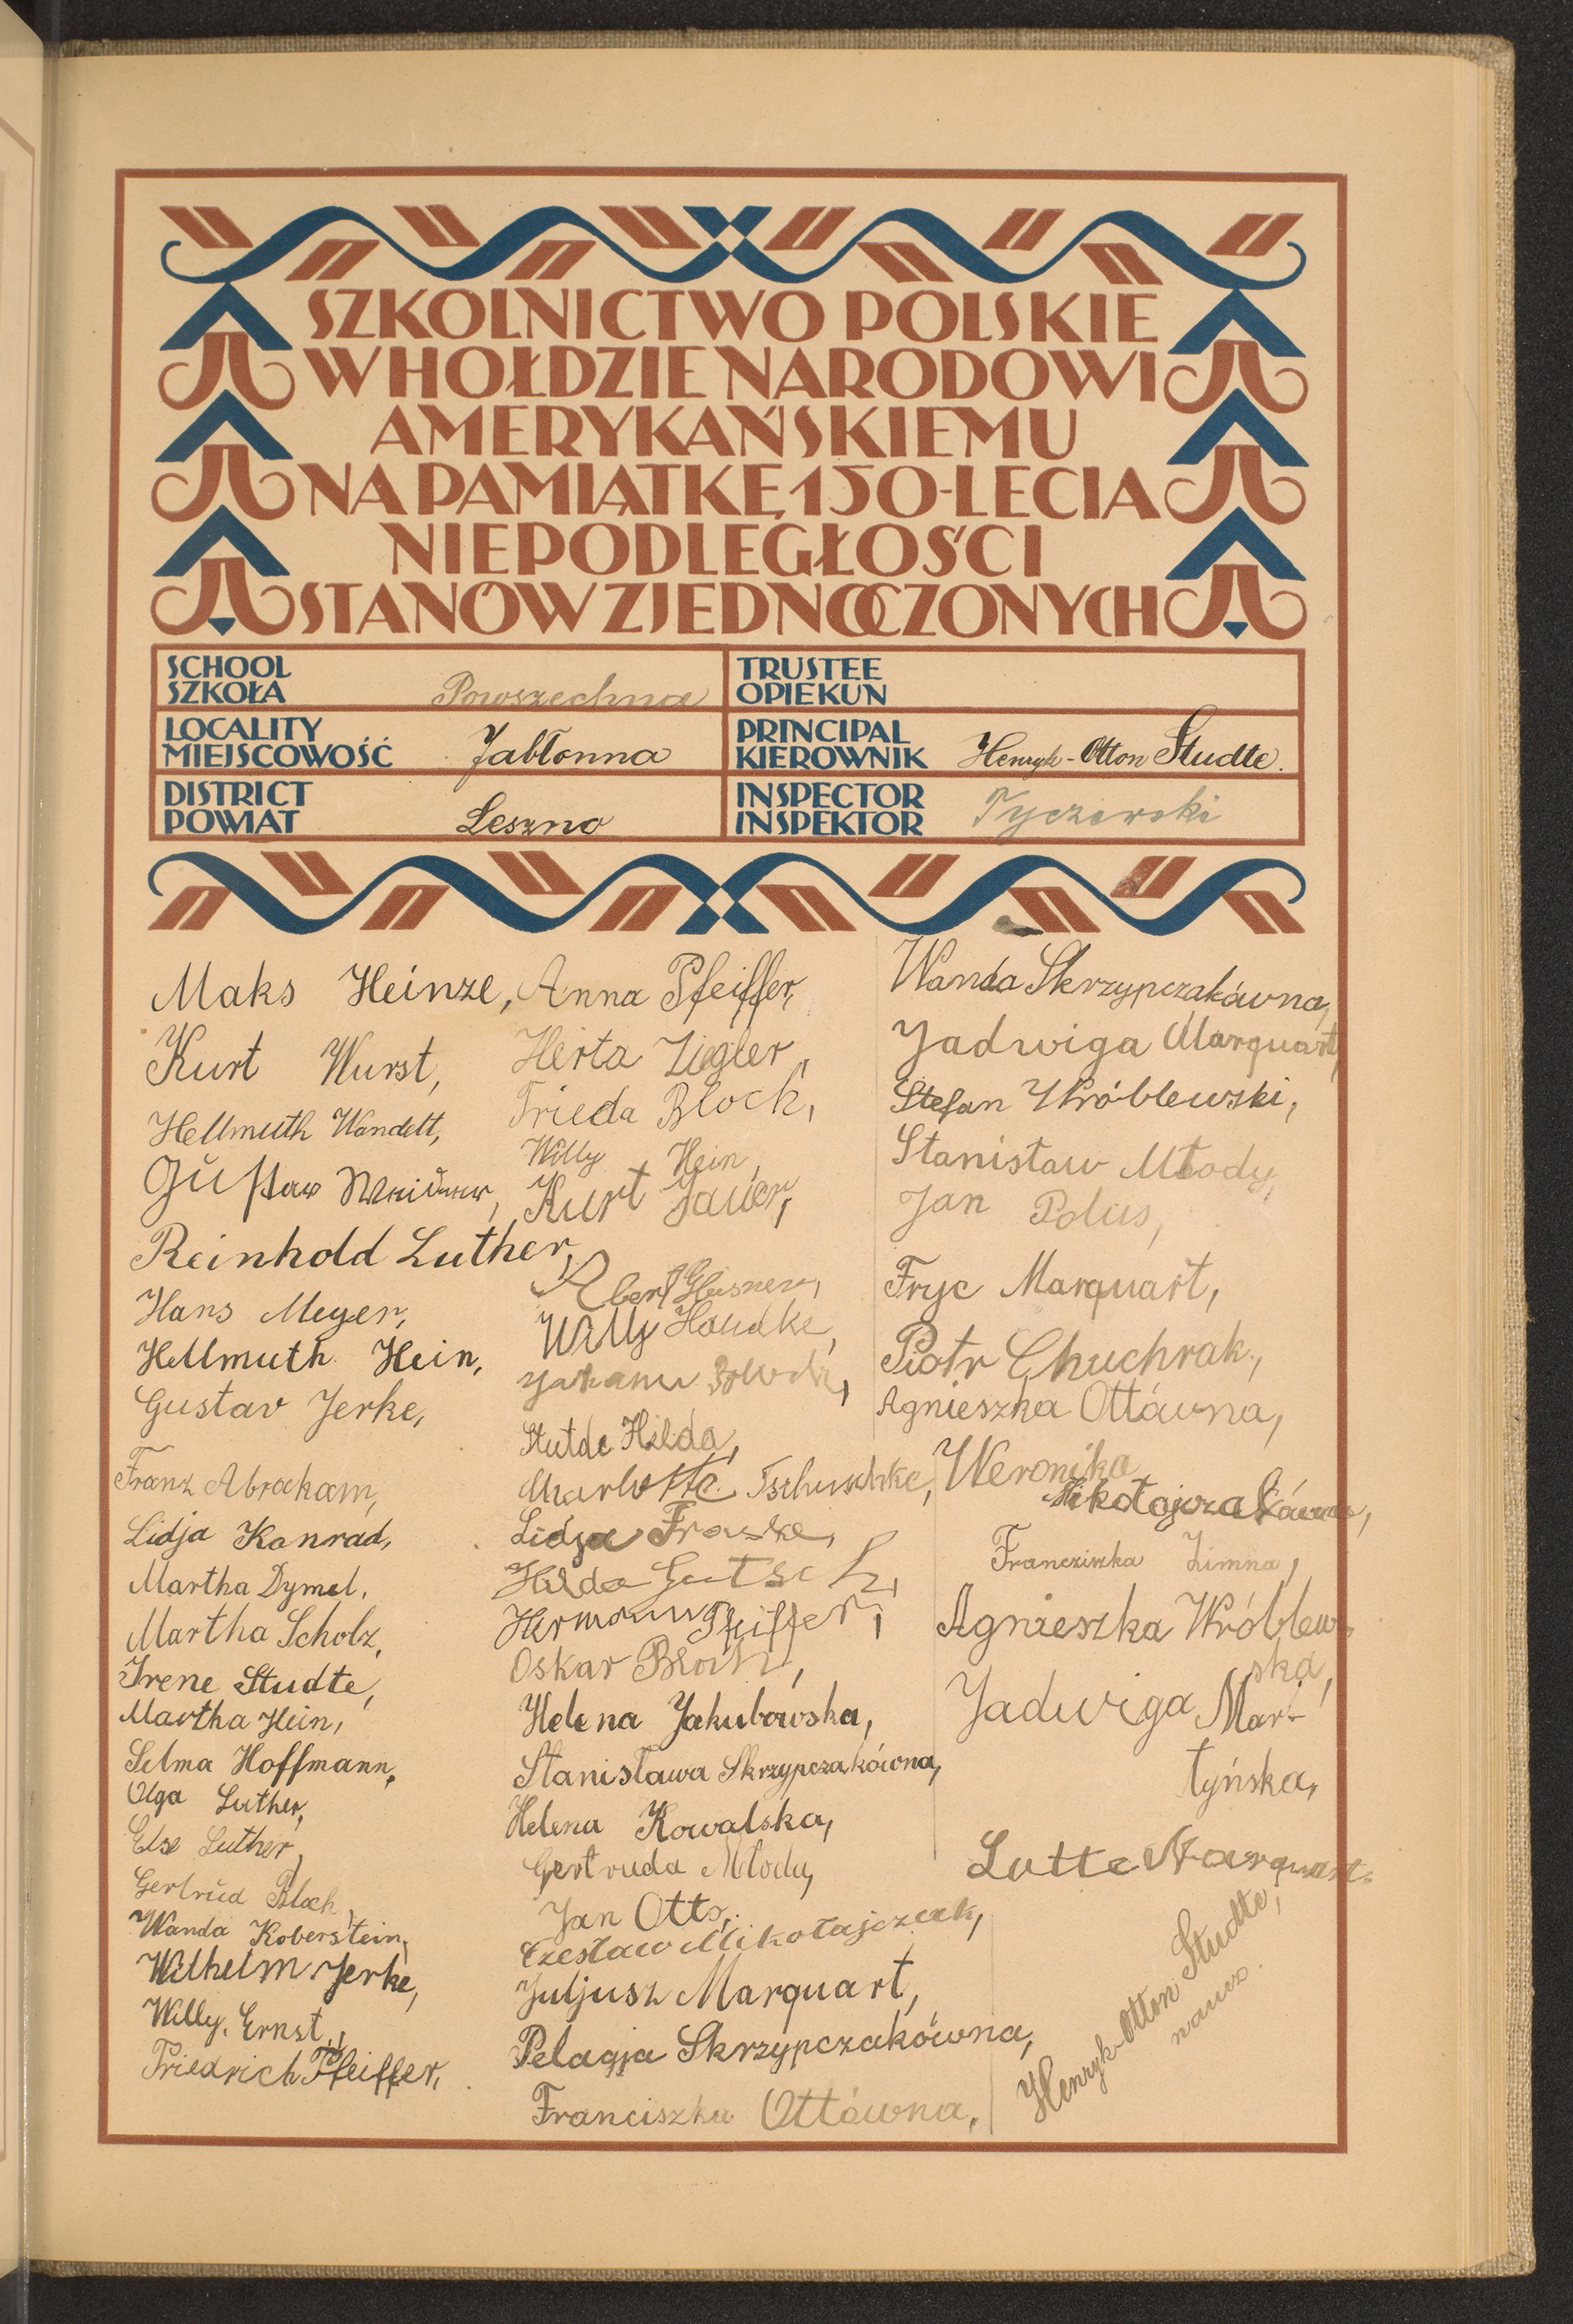 SZKOLNICTWO POLSKIE
W HOŁDZIE NARODOWI
AMERYKAŃSKIEMU
NA PAMIĄTKĘ 150-LECIA
NIEPODLEGŁOŚCI
STANÓW ZJEDNOCZONYCH
SCHOOL
SZKOŁA
Powszechna
TRUSTEE
OPIEKUN
LOCALITY
MIEJSCOWOŚĆ
Jabłonna
PRINCIPAL
KIEROWNIK
Henryk-Otton Studte.
DISTRICT
POWIAT
Leszno
INSPECTOR
INSPEKTOR
Tyczewski
Maks Heinze,
Kurt Wurst,
Hellmuth Wandelt,
Gustaw
Reinhold Luther,
Hans Meyer,
Hellmuth Hein,
Gustav Jerke,
Franz Abraham,
Lidja Konrad,
Martha Dymel,
Martha Scholz,
Irene Studte,
Martha Hein,
Selma Hoffmann,
Olga Luther,
Else Luther,
Gertrud Bloch,
Wanda Koberstein,
Wilhelm Jerke,
Willy Ernst,
Friedrich Pfeiffer,
Anna Pfeiffer,
Herta Ziegler,
Frieda Block,
Willy Hein,
Kurt Jauer,
Willy Handke,
Stutde Hilda,
Lidja Fraske,
Hilda Gutsch,
Hermann Pfeiffer,
Oskar
Helena Jakubowska,
Stanisława Skrzypczakówna,
Helena Kowalska,
Gertruda Młoda,
Jan Otto,
Czesław Mikołajczak,
Juljusz Marquart,
Pelagja Skrzypczakówna,
Franciszka Ottówna,
Wanda Skrzypczakówna,
Jadwiga Marquart,
Stefan Wróblewski,
Stanisław Młody,
Jan Polus,
Fryc Marquart,
Piotr Chuchrak,
Agnieszka Ottówna,
Weronika
Mikołajczakówna,
Franciszka Zimna,
Agnieszka Wróblew-
ska,
Jadwiga Mar-
tyńska,
Lotte Marquart.
Henryk-Otton Studte,
naucz.